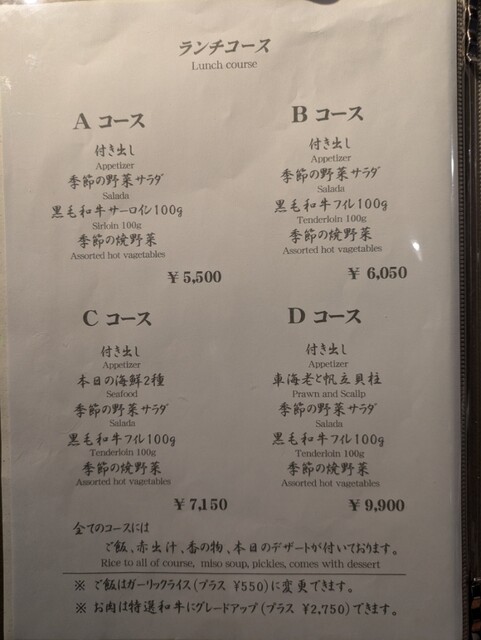 ランチコース
Lunch course
A コース
付き出し
Appetizer
季節の野菜サラダ
Salada
黒毛和牛サーロイン100g
Slrloin 100g
季節の焼野菜
Assorted hot vagetables
¥ 5,500
B コース
付き出し
Appetizer
季節の野菜サラダ
Salada
黒毛和牛フィレ100g
Tenderloin 100g
季節の焼野菜
Assorted hot vagetables
¥ 6,050
C コース
付き出し
Appetizer
本日の海鮮2種
Seafood
季節の野菜サラダ
Salada
黒毛和牛フィレ100g
Tenderloin 100g
季節の焼野菜
Assorted hot vagetables
¥ 7,150
D コース
付き出し
Appetizer
車海老と帆立貝柱
Prawn and Scallp
季節の野菜サラダ
Salada
黒毛和牛フィレ100g
Tenderloin 100g
季節の焼野菜
Assorted hot vagetables
¥ 9,900
全てのコースには
ご飯、赤出汁、香の物、本日のデザートが付いております。
Rice to all of course, miso soup, pickles, comes with dessert
※ ご飯はガーリックライス(プラス ¥550)に変更できます。
※ お肉は特選和牛にグレードアップ(プラス ¥2,750)できます。